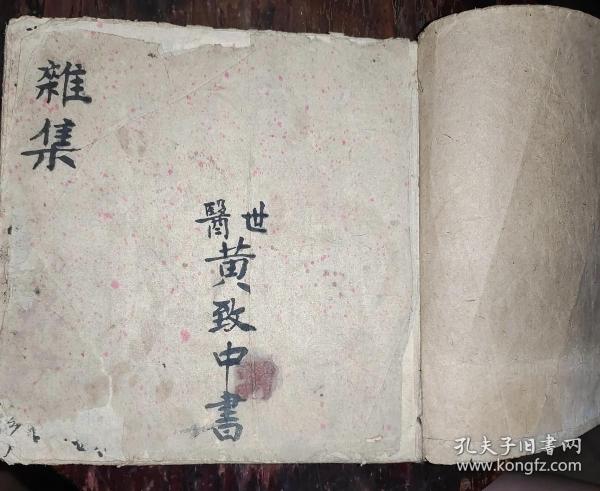 世醫
黄致中書
雜集
孔夫子旧書网
www.kongfz.com